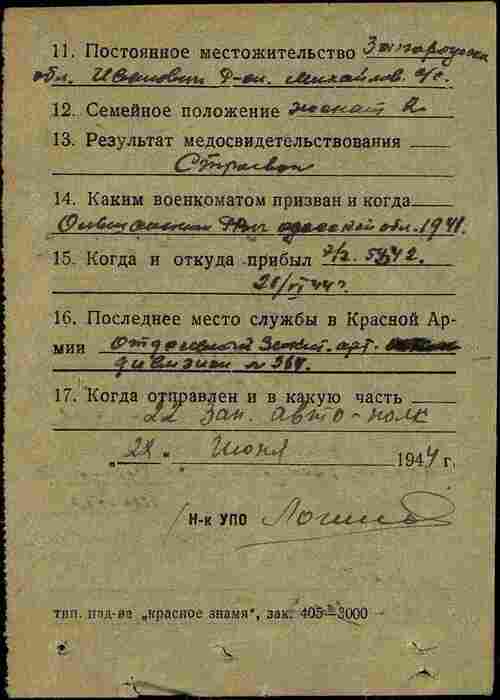 11. Постоянное местожительство Запорожская
обл. Иванович р-он. Михайлов. с/с.
12. Семейное положение женат 2
13. Результат медосвидетельствования
Строевой
14. Каким военкоматом призван и когда
РВК одесской обл. 1941.
15. Когда и откуда прибыл п/я. 54242.
26/VI 44 г.
16. Последнее место службы в Красной Ар-
мии Отдельный Зенит. арт.
дивизион № 364.
17. Когда отправлен и в какую часть
22 зап. авто-полк
„28" Июня 1944 г.
Н-к УПО
тип. изд-ва „красное знамя", зак. 405—3000